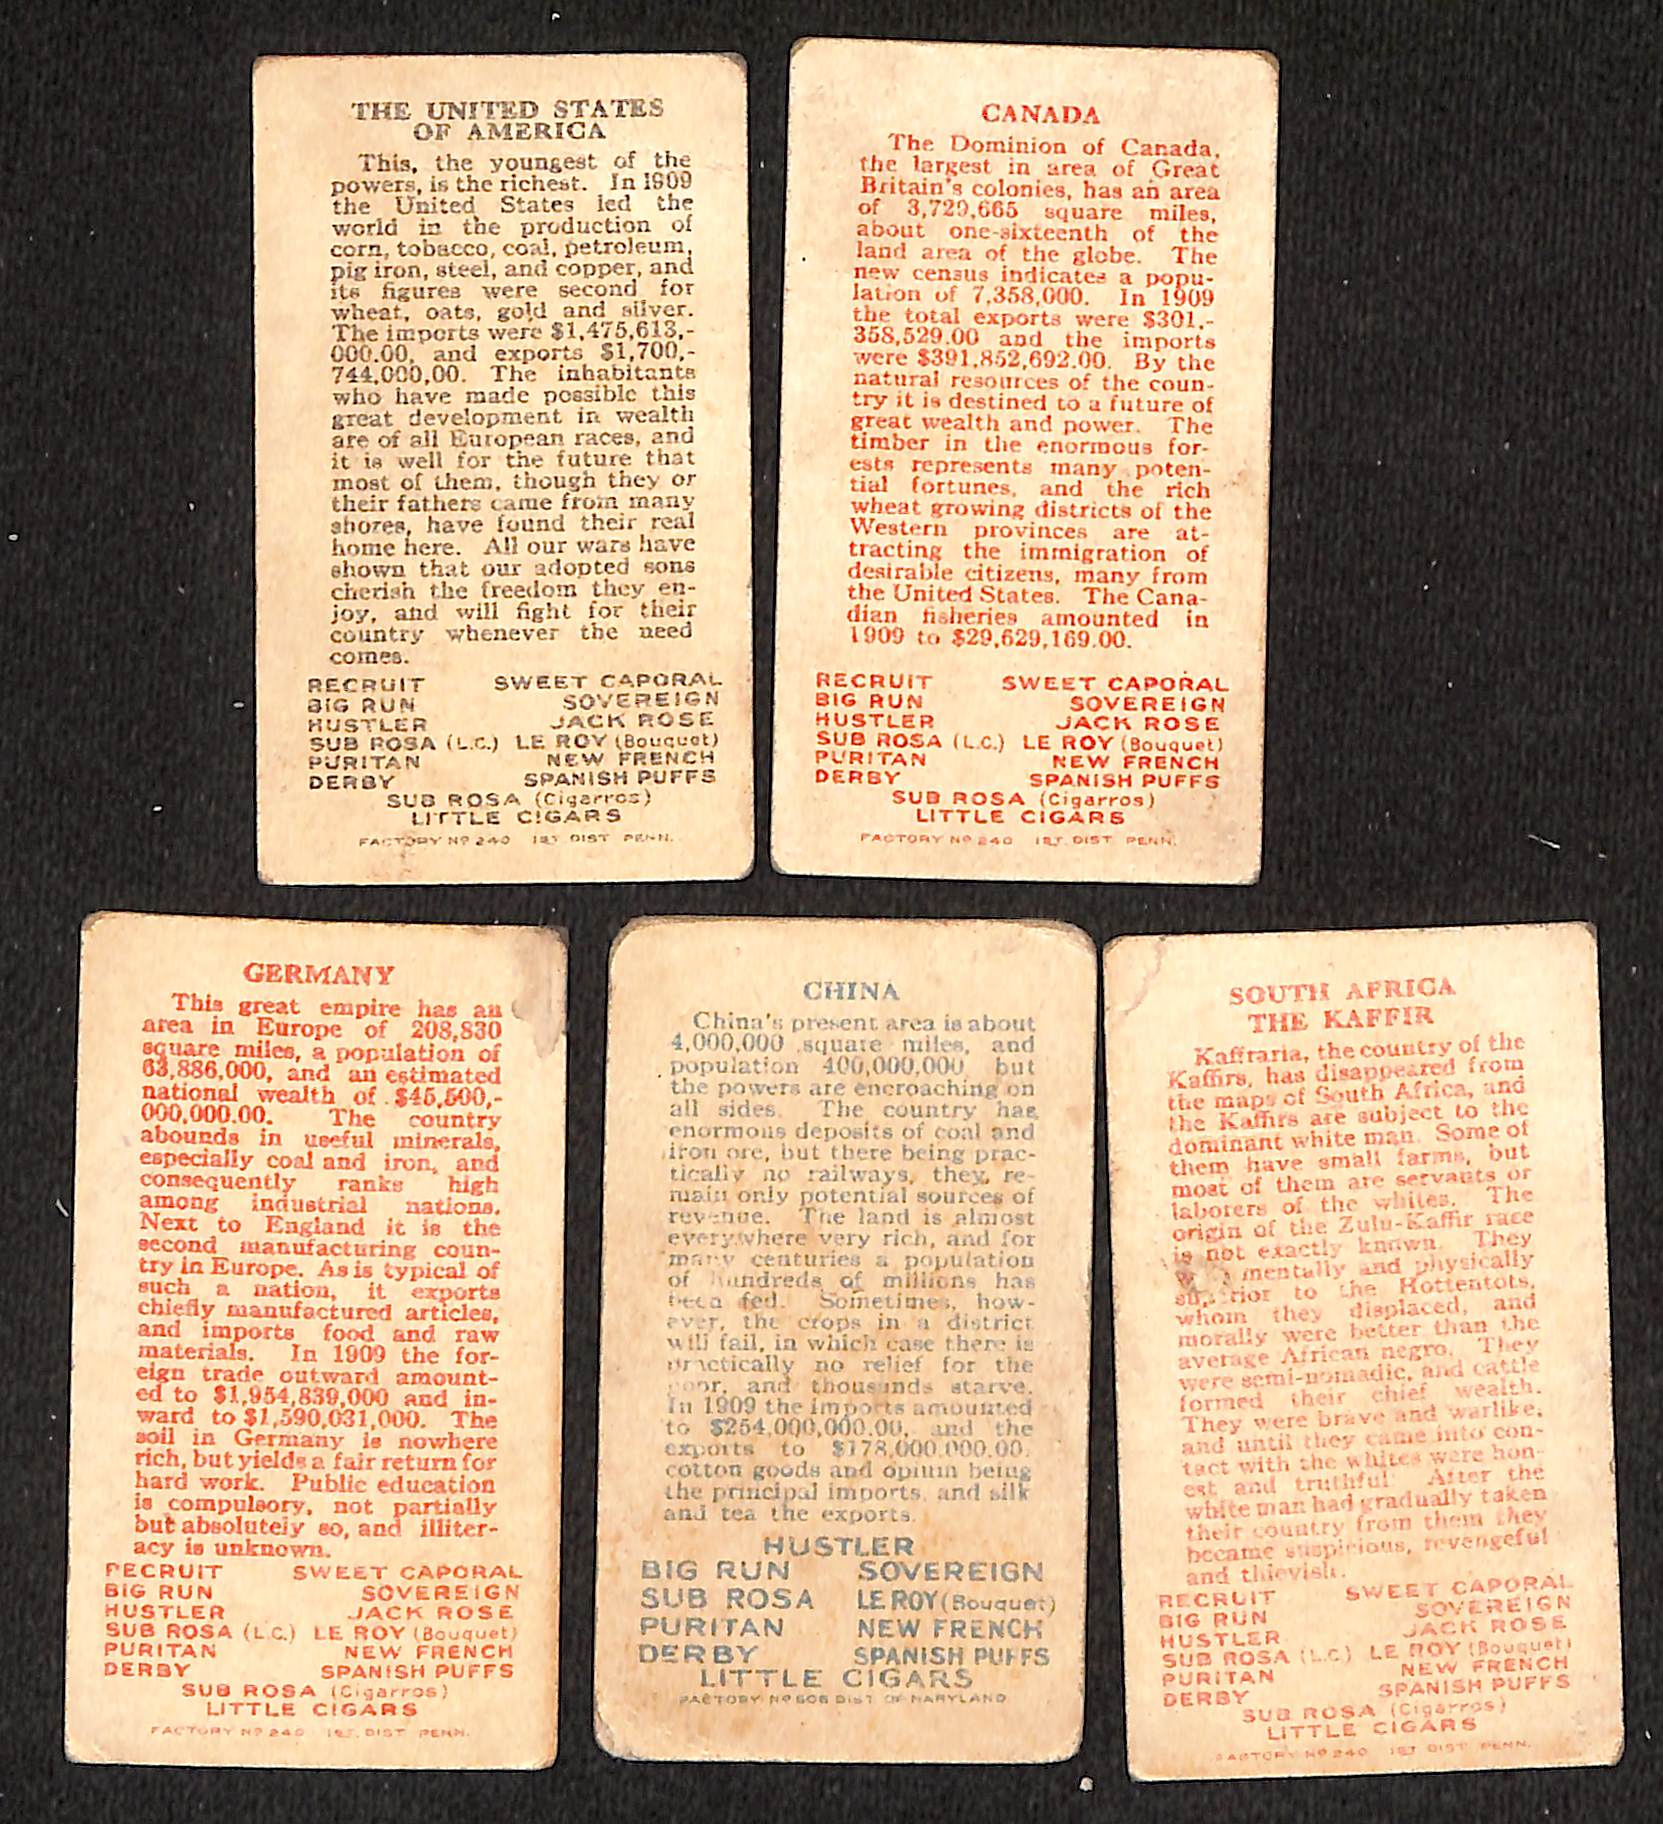 THE UNITED STATES
OF AMERICA
This, the youngest of the
powers, is the richest. In 1909
the United States led the
world in the production of
corn, tobacco, coal, petroleum,
pig iron, steel, and copper, and
its figures were second for
wheat, oats, gold and silver.
The imports were $1,475,613,-
000.00, and exports $1,700,-
744,000,00. The inhabitants
who have made possible this
great development in wealth
are of all European races, and
it is well for the future that
most of them, though they or
their fathers came from many
shores, have found their real
home here. All our wars have
shown that our adopted sons
cherish the freedom they en-
joy, and will fight for their
country whenever the need
comes.
RECRUIT SWEET CAPORAL
BIG RUN SOVEREIGN
HUSTLER JACK ROSE
SUB ROSA (L.C.) LE ROY (Bouquet)
PURITAN NEW FRENCH
DERBY SPANISH PUFFS
SUB ROSA (Cigarros)
LITTLE CIGARS
FACTORY Nº 240 1ST. DIST. PENN.
CANADA
The Dominion of Canada,
the largest in area of Great
Britain's colonies, has an area
of 3,729,665 square miles,
about one-sixteenth of the
land area of the globe. The
new census indicates a popu-
lation of 7,358,000. In 1909
the total exports were $301,-
358,529.00 and the imports
were $391,852,692.00. By the
natural resources of the coun-
try it is destined to a future of
great wealth and power. The
timber in the enormous for-
ests represents many poten-
tial fortunes, and the rich
wheat growing districts of the
Western provinces are at-
tracting the immigration of
desirable citizens, many from
the United States. The Cana-
dian fisheries amounted in
1909 to $29,629,169.00.
RECRUIT SWEET CAPORAL
BIG RUN SOVEREIGN
HUSTLER JACK ROSE
SUB ROSA (L.C.) LE ROY (Bouquet)
PURITAN NEW FRENCH
DERBY SPANISH PUFFS
SUB ROSA (Cigarros)
LITTLE CIGARS
FACTORY Nº 240 1ST. DIST. PENN.
GERMANY
This great empire has an
area in Europe of 208,830
square miles, a population of
63,886,000, and an estimated
national wealth of $45,500,-
000,000.00. The country
abounds in useful minerals,
especially coal and iron, and
consequently ranks high
among industrial nations.
Next to England it is the
second manufacturing coun-
try in Europe. As is typical of
such a nation, it exports
chiefly manufactured articles,
and imports food and raw
materials. In 1909 the for-
eign trade outward amount-
ed to $1,954,839,000 and in-
ward to $1,590,031,000. The
soil in Germany is nowhere
rich, but yields a fair return for
hard work. Public education
is compulsory, not partially
but absolutely so, and illiter-
acy is unknown.
RECRUIT SWEET CAPORAL
BIG RUN SOVEREIGN
HUSTLER JACK ROSE
SUB ROSA (L.C.) LE ROY (Bouquet)
PURITAN NEW FRENCH
DERBY SPANISH PUFFS
SUB ROSA (Cigarros)
LITTLE CIGARS
FACTORY Nº 240 1ST. DIST. PENN.
CHINA
China's present area is about
4,000,000 square miles, and
population 400,000,000 but
the powers are encroaching on
all sides. The country has
enormous deposits of coal and
iron ore, but there being prac-
tically no railways, they re-
main only potential sources of
revenue. The land is almost
everywhere very rich, and for
many centuries a population
of hundreds of millions has
been fed. Sometimes, how-
ever, the crops in a district
will fail, in which case there is
practically no relief for the
poor, and thousands starve.
In 1909 the imports amounted
to $254,000,000.00, and the
exports to $178,000,000.00,
cotton goods and opium being
the principal imports, and silk
and tea the exports.
HUSTLER
BIG RUN SOVEREIGN
SUB ROSA LE ROY (Bouquet)
PURITAN NEW FRENCH
DERBY SPANISH PUFFS
LITTLE CIGARS
FACTORY Nº 606 DIST. OF MARYLAND
SOUTH AFRICA
THE KAFFIR
Kaffraria, the country of the
Kaffirs, has disappeared from
the maps of South Africa, and
the Kaffirs are subject to the
dominant white man. Some of
them have small farms, but
most of them are servants or
laborers of the whites. The
origin of the Zulu-Kaffir race
is not exactly known. They
mentally and physically
superior to the Hottentots,
whom they displaced, and
morally were better than the
average African negro. They
were semi-nomadic, and cattle
formed their chief wealth.
They were brave and warlike,
and until they came into con-
tact with the whites were hon-
est and truthful. After the
white man had gradually taken
their country from them they
became suspicious, revengeful
and thievish.
RECRUIT SWEET CAPORAL
BIG RUN SOVEREIGN
HUSTLER JACK ROSE
SUB ROSA (L.C.) LE ROY (Bouquet)
PURITAN NEW FRENCH
DERBY SPANISH PUFFS
SUB ROSA (Cigarros)
LITTLE CIGARS
FACTORY Nº 240 1ST DIST. PENN.